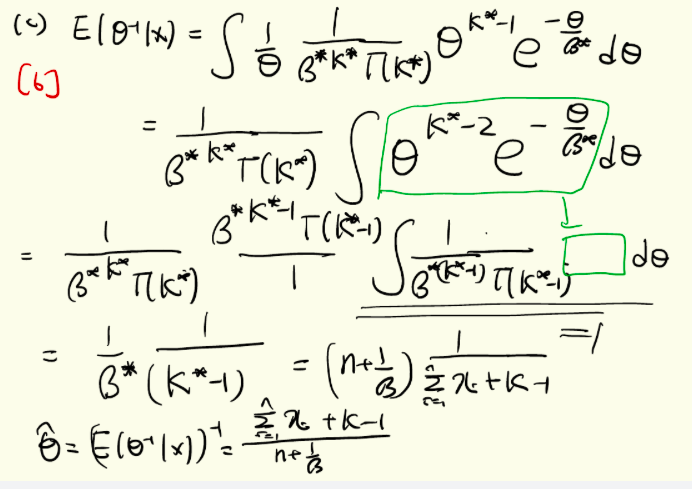 (c) E(θ⁻¹|x) = ∫ 1/θ 1/(β*^{K*} Γ(K*)) θ^{K*-1} e^{-θ/β*} dθ
[6]
= 1/(β*^{K*} Γ(K*)) ∫ θ^{K*-2} e^{-θ/β*} dθ
= 1/(β*^{K*} Γ(K*)) β*^{K*-1} Γ(K*-1)/1 ∫ 1/(β*^{(K*-1)} Γ(K*-1)) □ dθ
=1
= 1/β* 1/(K*-1) = (n+1/β) 1/(∑_{i=1}^{n} xᵢ+K-1)
θ̂ = (E(θ⁻¹|x))⁻¹ = (∑_{i=1}^{n} xᵢ +K-1)/(n+1/β)